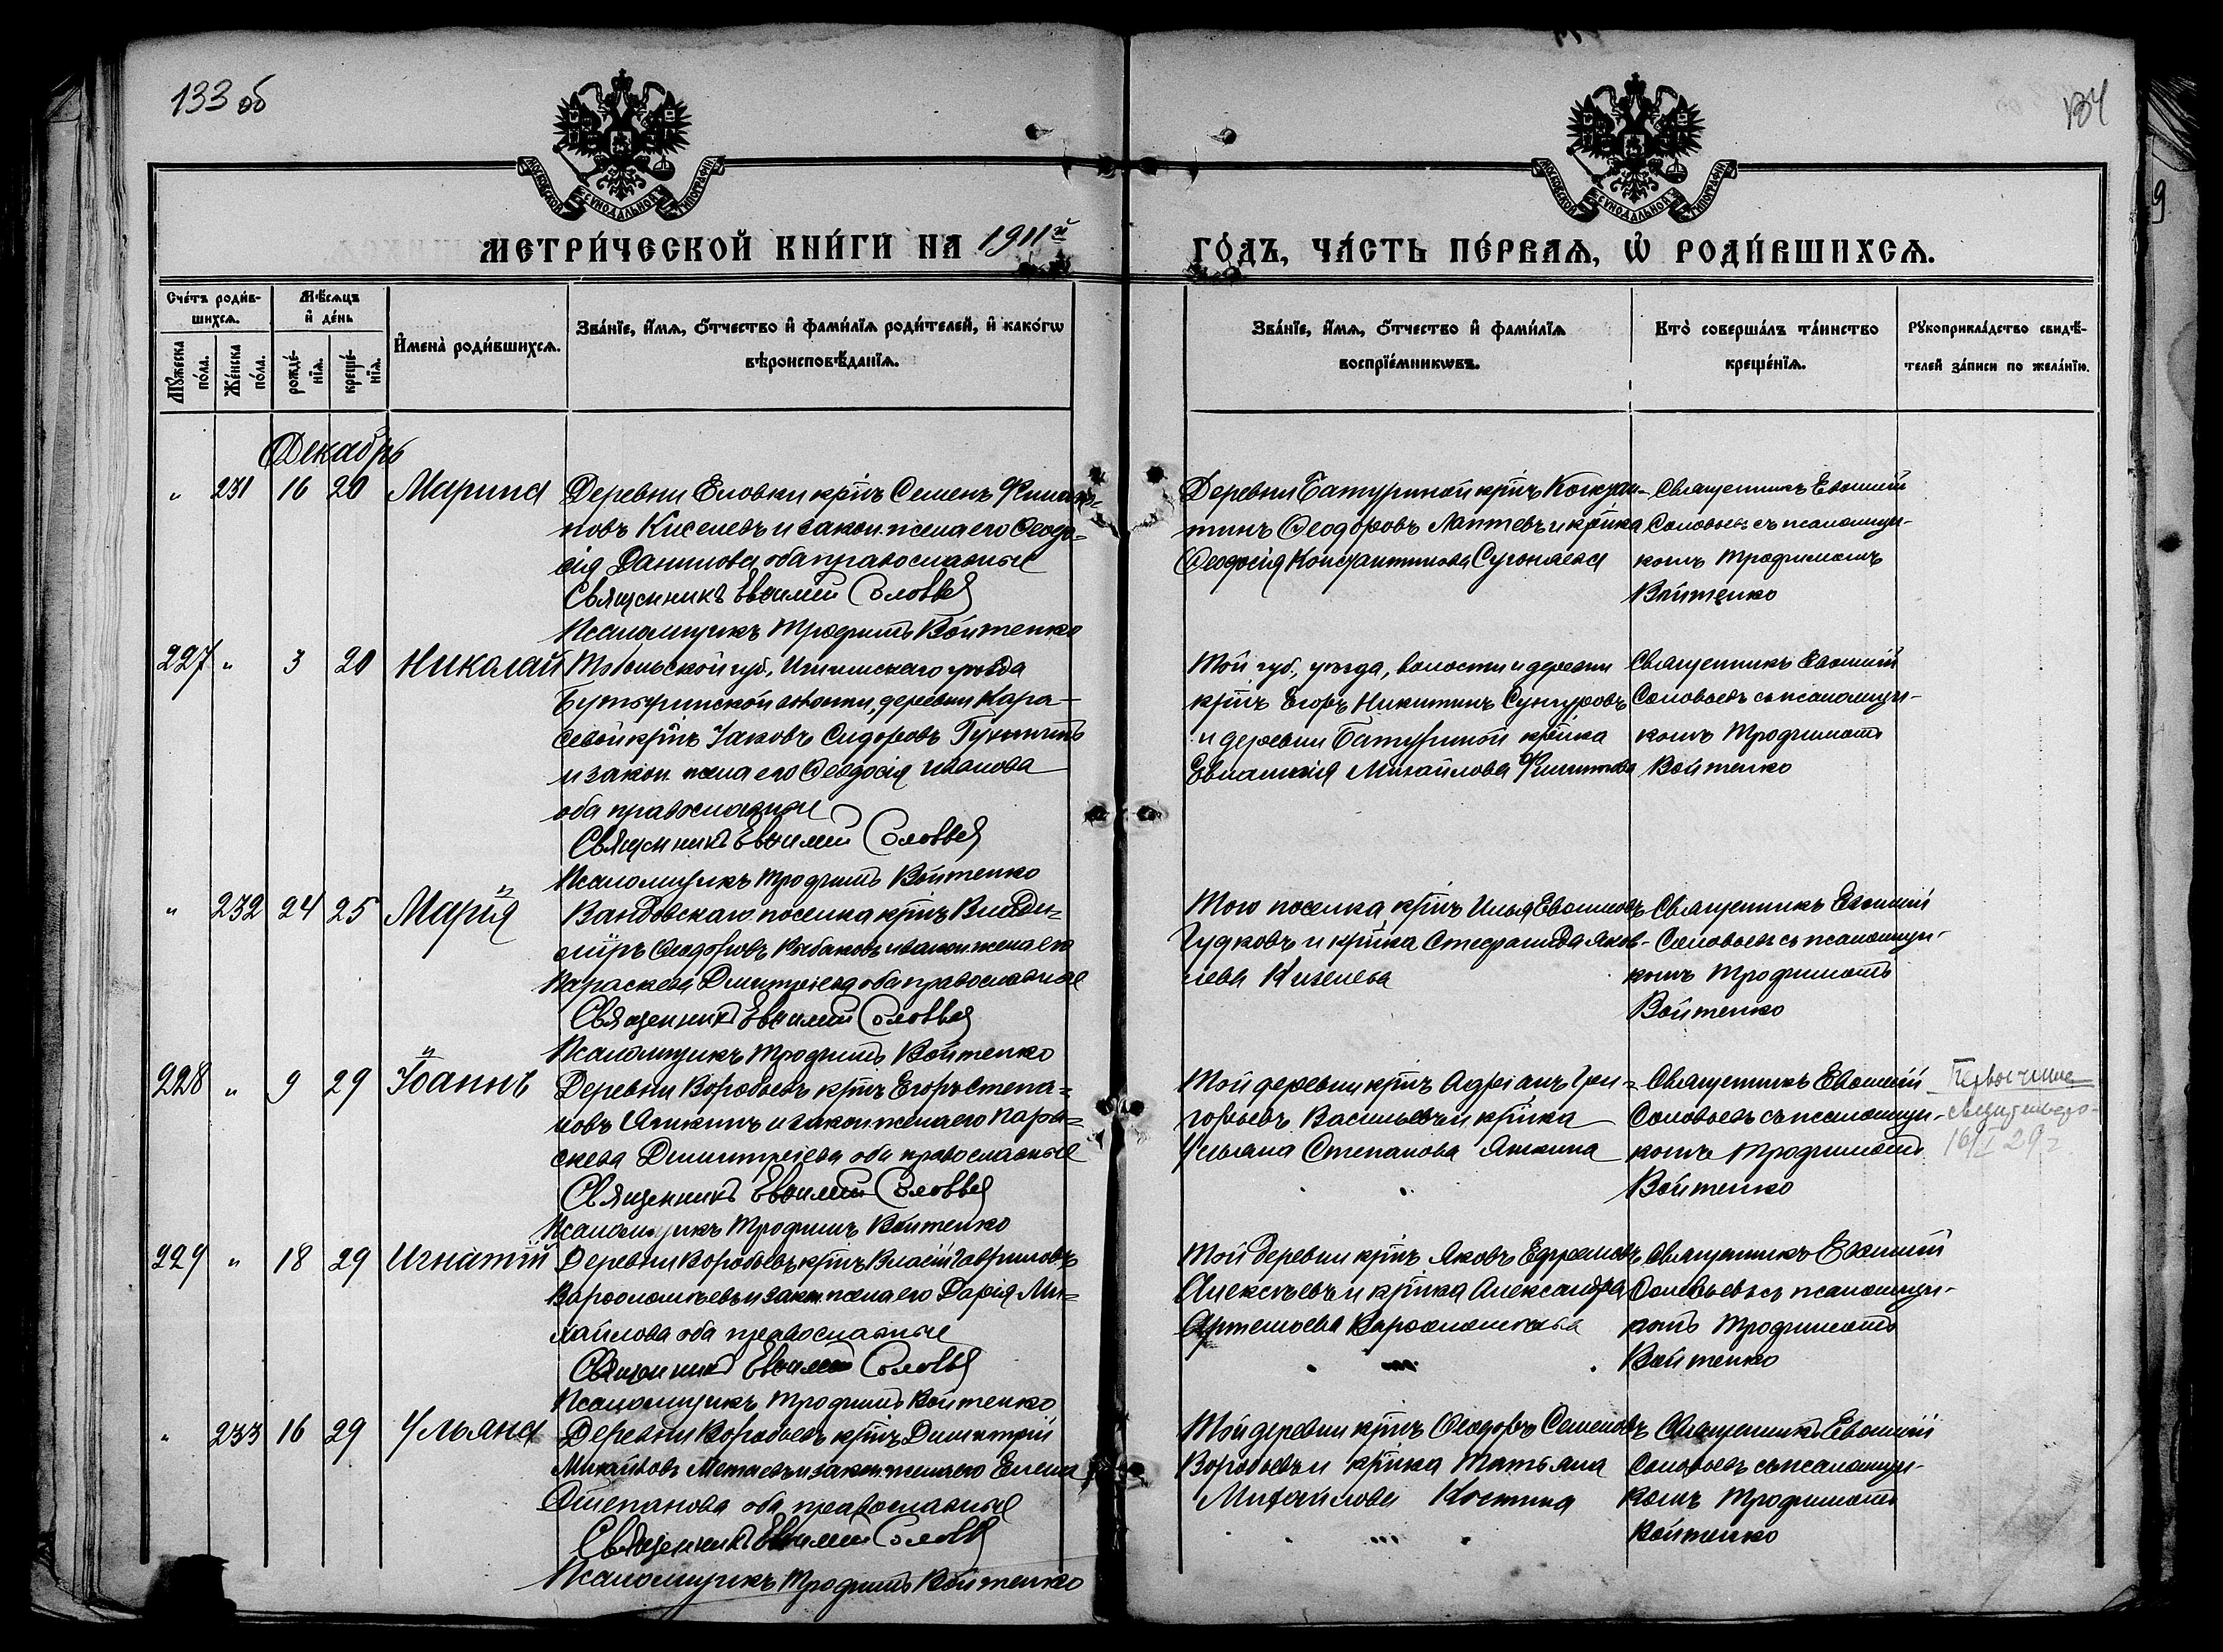 133 об
134
МОСКОВСКОЙ СѴНОДАЛЬНОЙ ТИПОГРАФІИ
МОСКОВСКОЙ СѴНОДАЛЬНОЙ ТИПОГРАФІИ
МЕТРИ́ЧЕСКОЙ КНИ́ГИ НА 1911й
ГО́ДЪ, ЧА́СТЬ ПЕ́РВАѦ, Ѡ҆ РОДИ́ВШИХСѦ.
Сче́тъ роди́в-
шихсѧ.
Мꙋ́жеска по́ла.
Же́нска по́ла.
Мѣ́сѧцъ
и҆ де́нь
рожде́-
нїѧ.
креще́-
нїѧ.
И҆мена̀ роди́вшихсѧ.
Зва́нїе, и҆́мѧ, ѻ҆́тчество и҆ фами́лїѧ роди́телей, и҆ како́гѡ
вѣроисповѣ́данїѧ.
Зва́нїе, и҆́мѧ, ѻ҆́тчество и҆ фами́лїѧ
воспрїе́мникѡвъ.
Кто̀ соверша́лъ та́инство
креще́нїѧ.
Рꙋкоприкла́дство свидѣ́-
телей за́писи по жела́нїю.
Декабрь
" 231 16 20 Марина
Деревни Еловки кр҃нъ Семенъ Филип-
повъ Киселевъ и закон. жена его Ѳеодо-
сія Данилова, оба православные
Священникъ Евѳимій Соловьев
Псаломщикъ Трофимъ Войтенко
Деревни Батуриной кр҃нъ Констан-
тинъ Ѳеодоровъ Лаптевъ и кр҃нка
Ѳеодосія Константинова Сугоняева
Священникъ Евѳимій
Соловьевъ съ псаломщи-
комъ Трофимомъ
Войтенко
227 " 3 20 Николай
Тобольской губ., Ишимскаго уѣзда
деревни Кара-
севой кр҃нъ Іаковъ Сидоровъ
и закон. жена его Ѳеодосія Иванова
оба православные
Священникъ Евѳимій Соловьев
Псаломщикъ Трофимъ Войтенко
Той губ., уѣзда, волости и деревни
кр҃нъ Егоръ Никитинъ Сунгуровъ
и деревни Батуриной кр҃нка
Евлампія Михайлова Филиппова
Священникъ Евѳимій
Соловьевъ съ псаломщи-
комъ Трофимомъ
Войтенко
" 232 24 25 Марія
поселка кр҃нъ Влади-
міръ Ѳеодоровъ Рыбаковъ и закон. жена его
Параскева Димитріева оба православные
Священникъ Евѳимій Соловьев
Псаломщикъ Трофимъ Войтенко
Того поселка кр҃нъ Илья Евѳимовъ
Гудковъ и кр҃нка Стефанида Яков-
лева Киселева
Священникъ Евѳимій
Соловьевъ съ псаломщи-
комъ Трофимомъ
Войтенко
228 " 9 29 Іоаннъ
Деревни Воробьевъ кр҃нъ Егоръ Степа-
новъ Яшкинъ и закон жена его Пара-
скева Димитріева оба православные
Священникъ Евѳимій Соловьев
Псаломщикъ Трофимъ Войтенко
Той деревни кр҃нъ Адріанъ Гри-
горьевъ Васильевъ и кр҃нка
Ульяна Степанова Яшкина
Священникъ Евѳимій
Соловьевъ съ псаломщи-
комъ Трофимомъ
Войтенко
16/I 29 г
229 " 18 29 Игнатій
Деревни Воробьевъ кр҃нъ Власій Гавриловъ
Варѳоломѣевъ и закон. жена его Дарія Ми-
хайлова оба православные
Священникъ Евѳимій Соловьев
Псаломщикъ Трофимъ Войтенко
Той деревни кр҃нъ Яковъ Ефремовъ
Алексѣевъ и кр҃нка Александра
Артемьева Варѳоломѣева
Священникъ Евѳимій
Соловьевъ съ псаломщи-
комъ Трофимомъ
Войтенко
" 233 16 29 Ульяна
Деревни Воробьевъ кр҃нъ Димитрій
Михайловъ и закон. жена его Елена
Степанова оба православные
Священникъ Евѳимій Соловьев
Псаломщикъ Трофимъ Войтенко
Той деревни кр҃нъ Ѳеодоръ Семеновъ
Воробьевъ и кр҃нка Татьяна
Михайлова Костина
Священникъ Евѳимій
Соловьевъ съ псаломщи-
комъ Трофимомъ
Войтенко